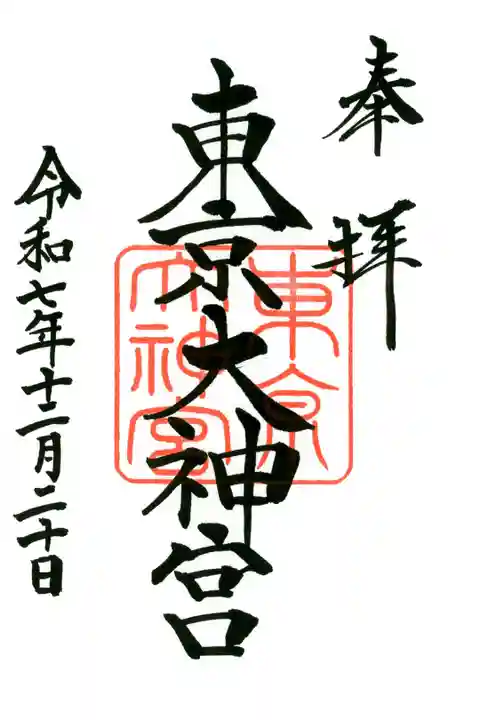 奉拝
東京大神宮
東京大神宮
令和七年十二月二十日